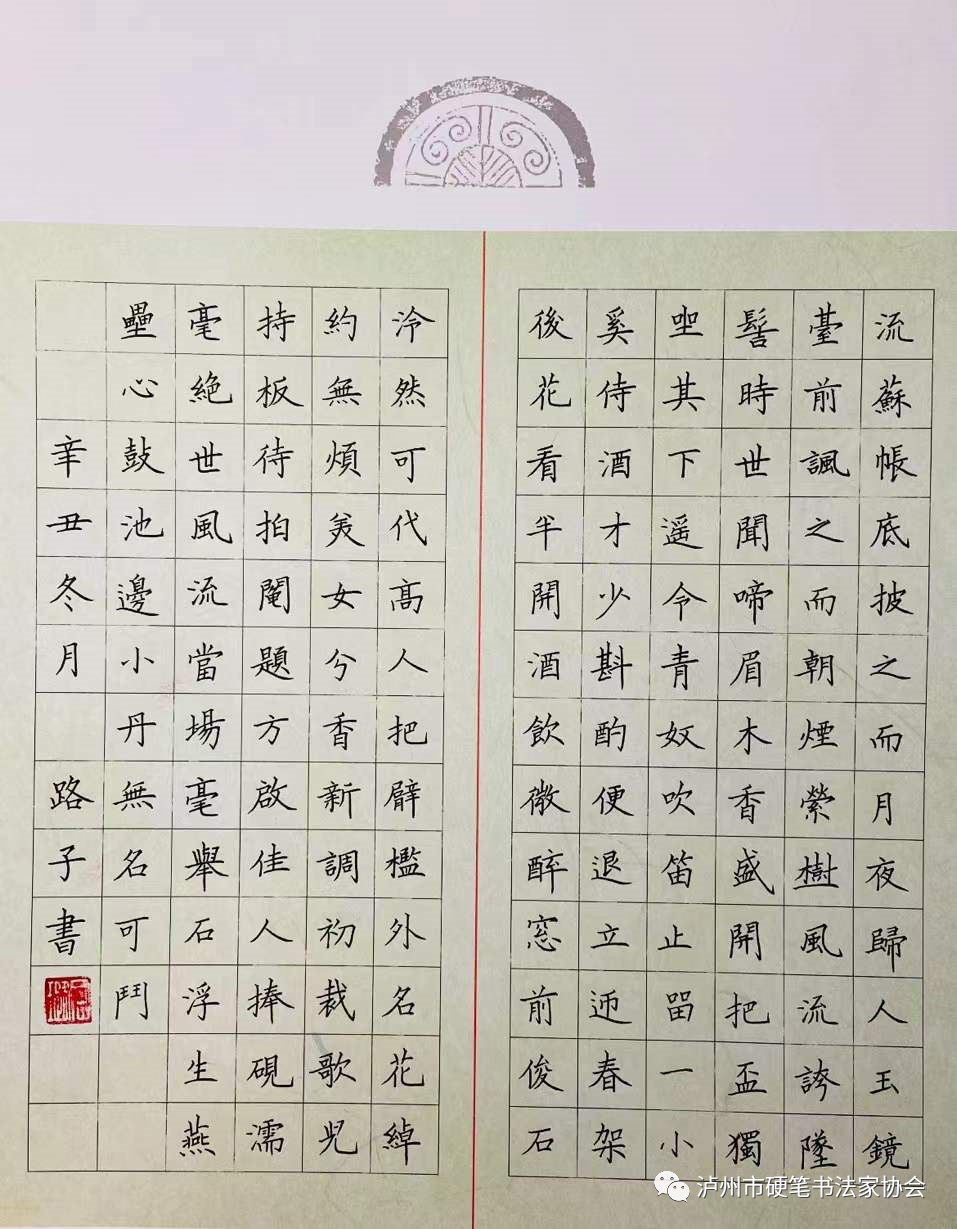 流蘇帳底披之而月夜歸人玉鏡
臺前諷之而朝煙縈樹風流誇墜
髻時世聞啼眉木香盛開把盃獨
坐其下遥令青奴吹笛止畱一小
奚侍酒才少斟酌便退立迊春架
後花看半開酒飲微醉窓前俊石
泠然可代高人把臂檻外名花綽
約無煩美女兮香新調初裁歌兒
持板待拍闔題方啟佳人捧硯濡
毫絕世風流當場毫舉石浮生燕
壘心鼓池邊小丹無名可鬥
辛丑冬月路子書
泸州市硬笔书法家协会